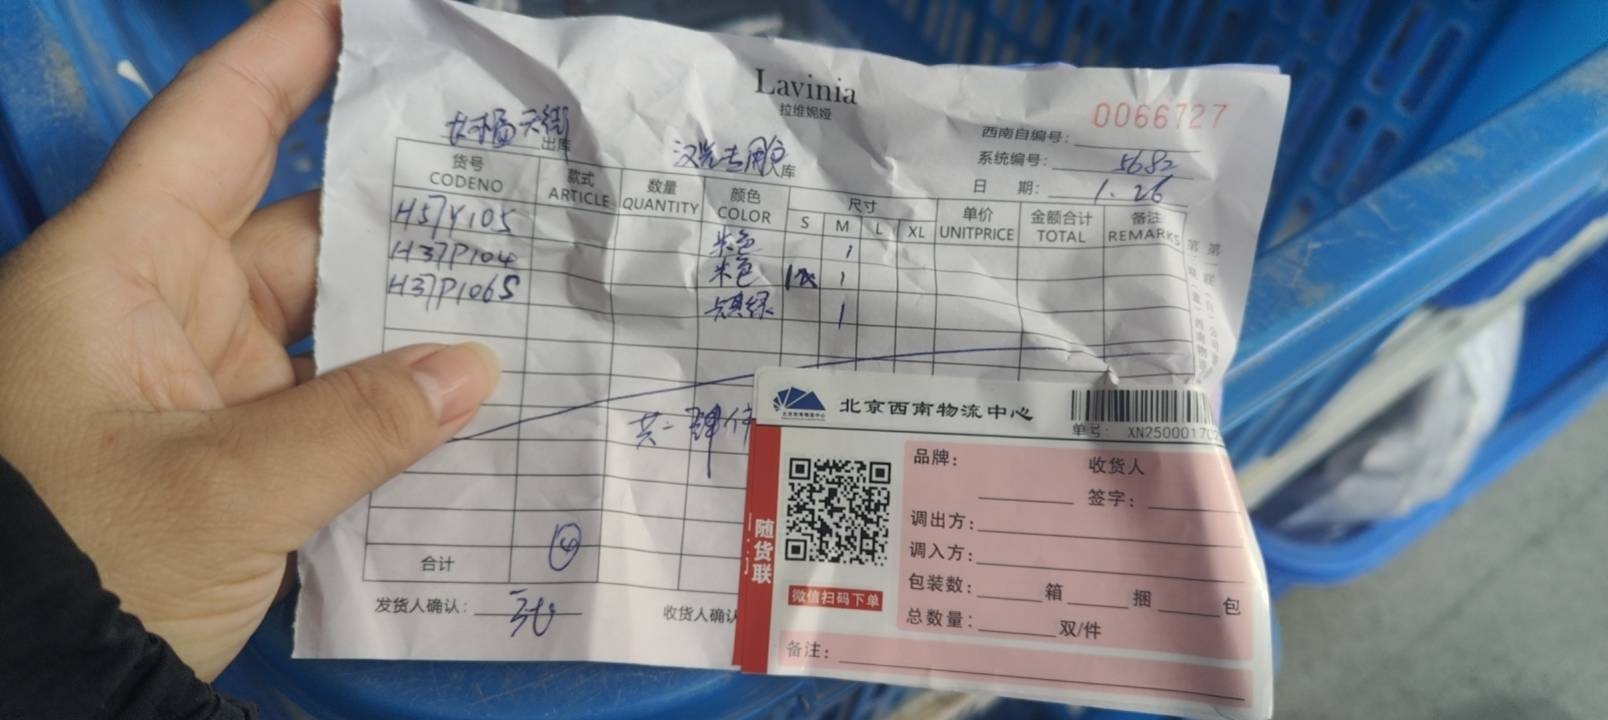 Lavinia
拉维妮娅
0066727
天街 出库
专用 入库
西南自编号:
系统编号: 5682
日 期: 1.26
货号 款式 数量 颜色 尺寸 单价 金额合计 备注
CODENO ARTICLE QUANTITY COLOR S M L XL UNITPRICE TOTAL REMARKS
H37Y105 米色 1
H37P104 米色 1
H37P106S 绿 1
共
合计 4
发货人确认:
收货人确认
北京西南物流中心
单号: XN25000170
随货联
微信扫码下单
品牌: 收货人
签字:
调出方:
调入方:
包装数: 箱 捆 包
总数量: 双/件
备注: